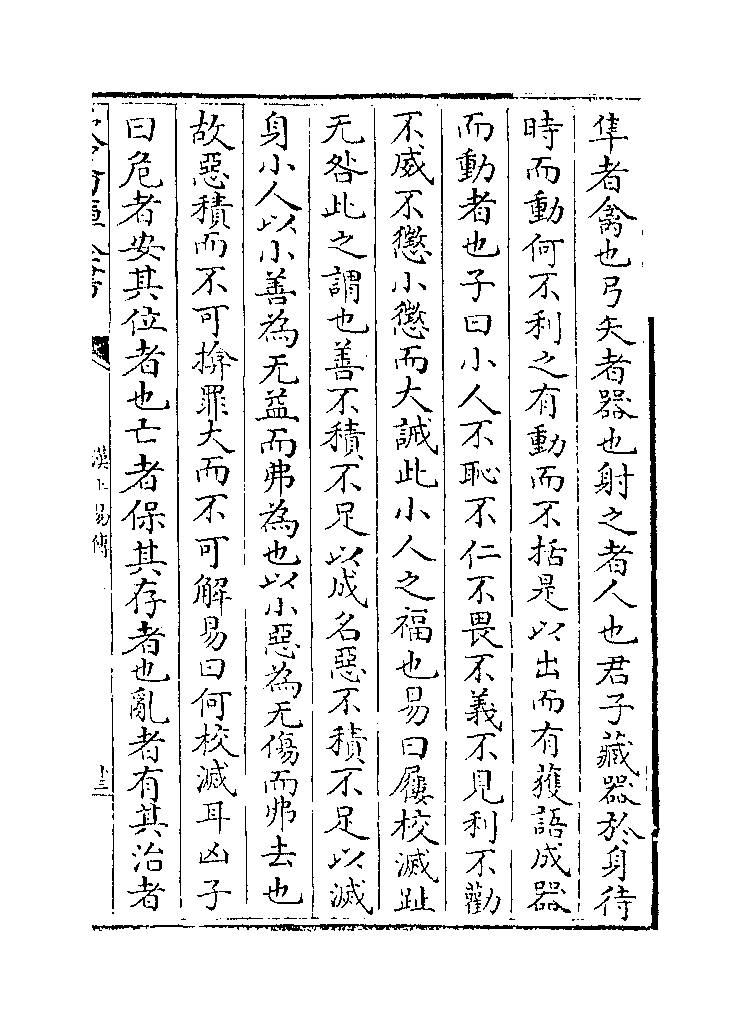 隼者禽也弓矢者器也射之者人也君子藏器於身待
時而動何不利之有動而不括是以出而有獲語成器
而動者也子曰小人不恥不仁不畏不義不見利不勸
不威不懲小懲而大誡此小人之福也易曰屨校滅趾
无咎此之謂也善不積不足以成名惡不積不足以滅
身小人以小善為无益而弗為也以小惡為无傷而弗去也
故惡積而不可揜罪大而不可解易曰何校滅耳凶子
曰危者安其位者也亡者保其存者也亂者有其治者
漢上易傳
十三